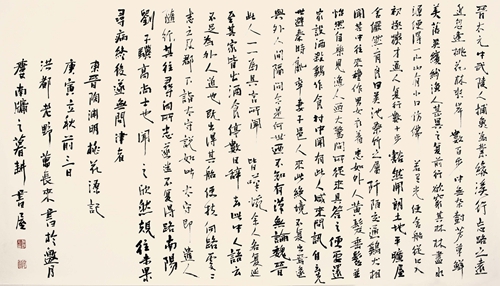 晋太元中武陵人捕鱼為業緣溪行忘路之遠
近忽逢桃花林夾岸數百步中無杂树芳草鲜
美落英缤纷漁人甚異之复前行欲窮其林林盡水
源便得一山山有小口仿佛若有光便舍船從口入
初极狭才通人复行数十步豁然開朗土地平曠屋
舍儼然有良田美池桑竹之属阡陌交通鸡犬相
聞其中往来种作男女衣着悉如外人黄髮垂髫並
怡然自樂見漁人乃大驚問所從来具答之便要還
家設酒殺鸡作食村中聞有此人咸来問訊自云先
世避秦時亂率妻子邑人来此绝境不复出焉遂
與外人間隔問今是何世乃不知有漢無論魏晉
此人一一為具言所聞皆叹惋余人各复延
至其家皆出酒食停數日辭去此中人語云
不足為外人道也既出得其船便扶向路處々
志之及郡下詣太守说如此太守即遣人
隨其往尋向所志遂迷不复得路南陽
劉子驥高尚士也聞之欣然規往未果
尋病终後遂無問津者
晋陶渊明桃花源記
庚寅立秋前三日
洪都老野長来書於
南牖之耕書屋